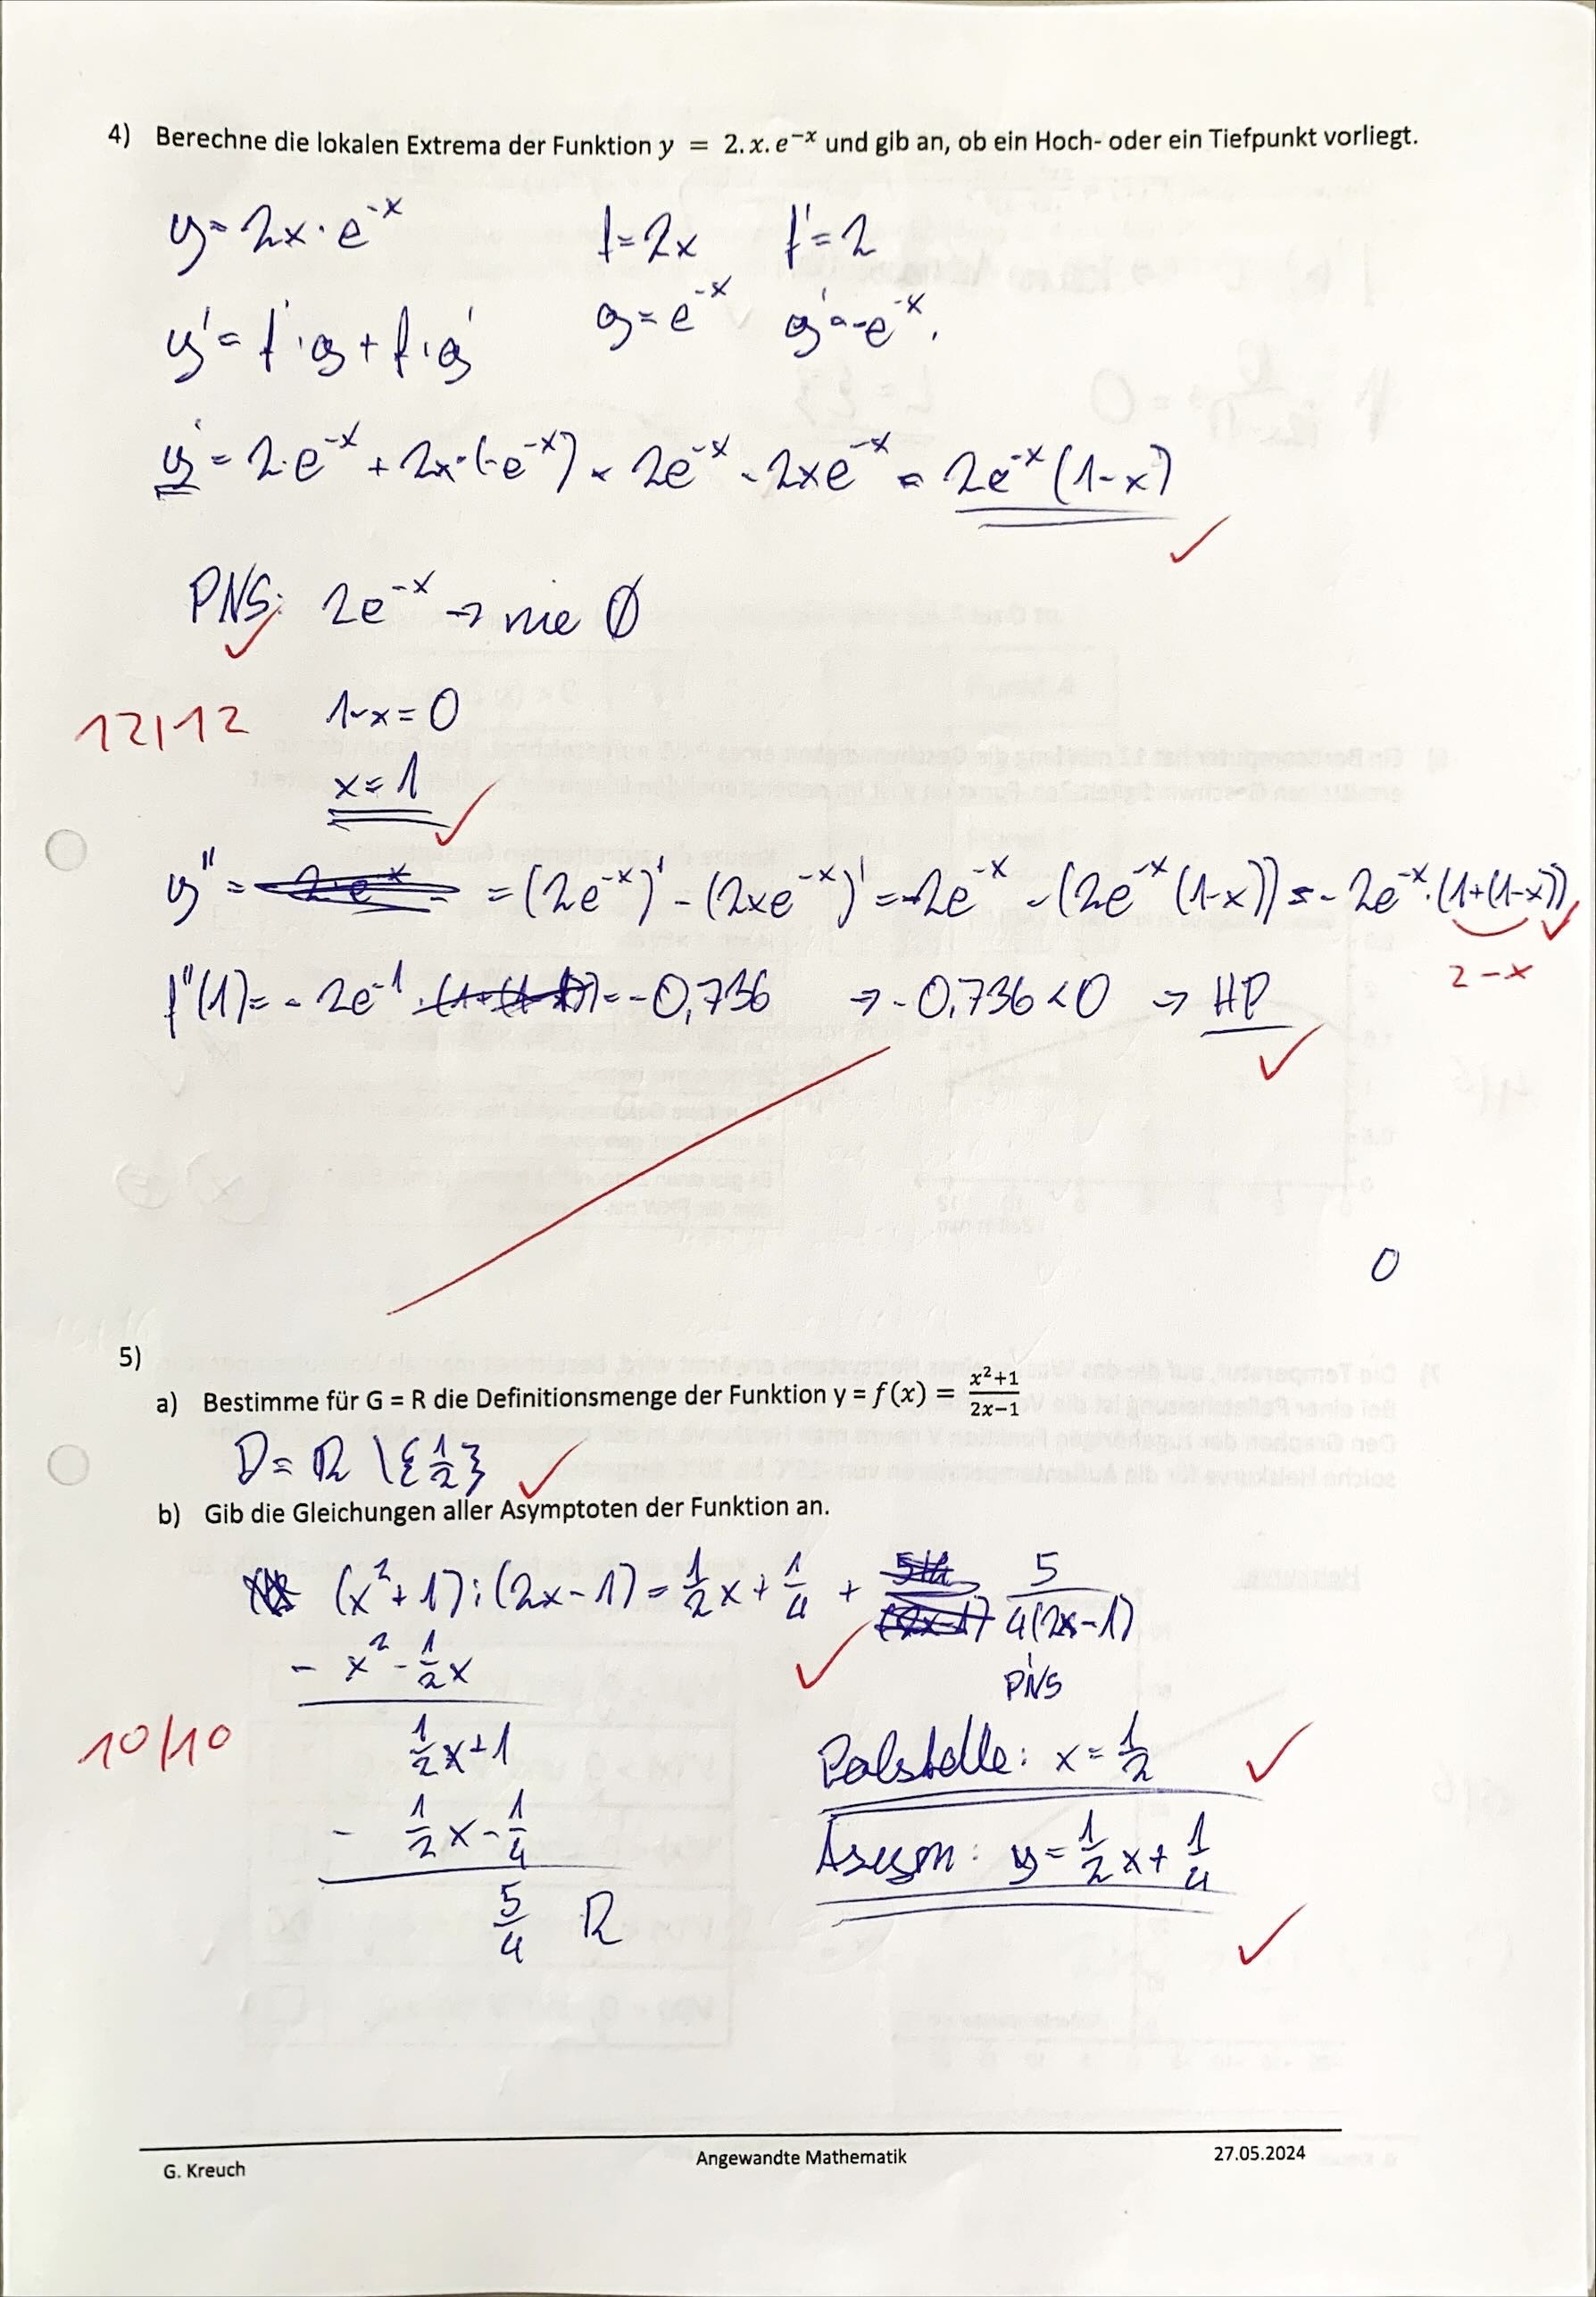 4) Berechne die lokalen Extrema der Funktion y = 2.x.e^{-x} und gib an, ob ein Hoch- oder ein Tiefpunkt vorliegt.
y = 2x · e^{-x} f = 2x f' = 2
y' = f' · g + f · g' g = e^{-x} g' = -e^{-x}.
y' = 2·e^{-x} + 2x·(-e^{-x}) = 2e^{-x} - 2xe^{-x} = 2e^{-x}(1-x)
PNS: 2e^{-x} → nie Ø
12/12 1-x = 0
x = 1
y'' = = (2e^{-x})' - (2xe^{-x})' = -2e^{-x} - (2e^{-x}(1-x)) = -2e^{-x}·(1+(1-x))
2-x
f''(1) = -2e^{-1} = -0,736 ⇒ -0,736 < 0 ⇒ HP
0
5)
a) Bestimme für G = R die Definitionsmenge der Funktion y = f(x) = \frac{x²+1}{2x-1}
D = R \ {1/2}
b) Gib die Gleichungen aller Asymptoten der Funktion an.
(x² + 1) : (2x - 1) = 1/2 x + 1/4 + 5/(4(2x-1))
- x² - 1/2 x
PNS
10/10 1/2 x + 1
Polstelle: x = 1/2
- 1/2 x - 1/4
Asym: y = 1/2 x + 1/4
5/4 R
G. Kreuch Angewandte Mathematik 27.05.2024